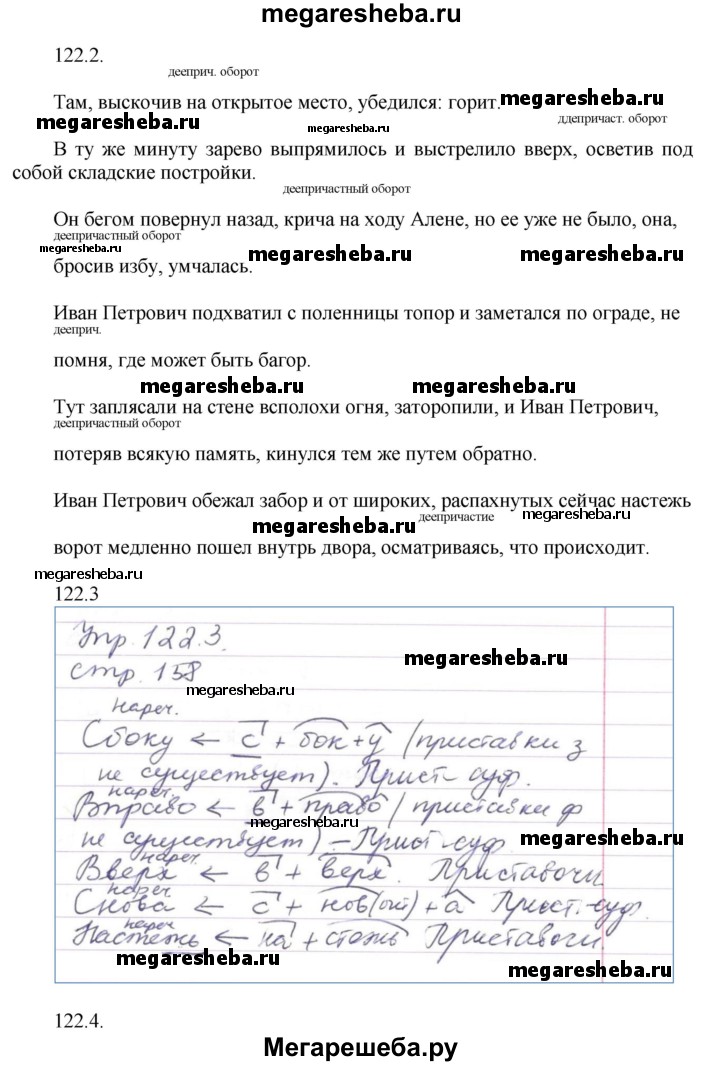 megaresheba.ru
122.2.
дееприч. оборот
Там, выскочив на открытое место, убедился: горит.
megaresheba.ru
megaresheba.ru
megaresheba.ru
ддепричаст. оборот
В ту же минуту зарево выпрямилось и выстрелило вверх, осветив под
собой складские постройки.
деепричастный оборот
Он бегом повернул назад, крича на ходу Алене, но ее уже не было, она,
деепричастный оборот
megaresheba.ru
megaresheba.ru
megaresheba.ru
бросив избу, умчалась.
Иван Петрович подхватил с поленницы топор и заметался по ограде, не
дееприч.
помня, где может быть багор.
megaresheba.ru
megaresheba.ru
Тут заплясали на стене всполохи огня, заторопили, и Иван Петрович,
деепричастный оборот
потеряв всякую память, кинулся тем же путем обратно.
Иван Петрович обежал забор и от широких, распахнутых сейчас настежь
деепричастие
megaresheba.ru
megaresheba.ru
ворот медленно пошел внутрь двора, осматриваясь, что происходит.
megaresheba.ru
122.3
Упр. 122.3.
megaresheba.ru
стр. 158
megaresheba.ru
нареч.
Сбоку ← с + бок + у (приставки з
не существует). Прист-суф.
нареч.
Вправо ← в + право (приставки ф
не существует) – Прист-суф.
megaresheba.ru
нареч.
Вверх ← в + верх. Приставочн.
нареч
Снова ← с + нов(ый) + а Прист.-суф.
нареч
Настежь ← на + стежь Приставочн.
megaresheba.ru
megaresheba.ru
122.4.
Мегарешеба.ру